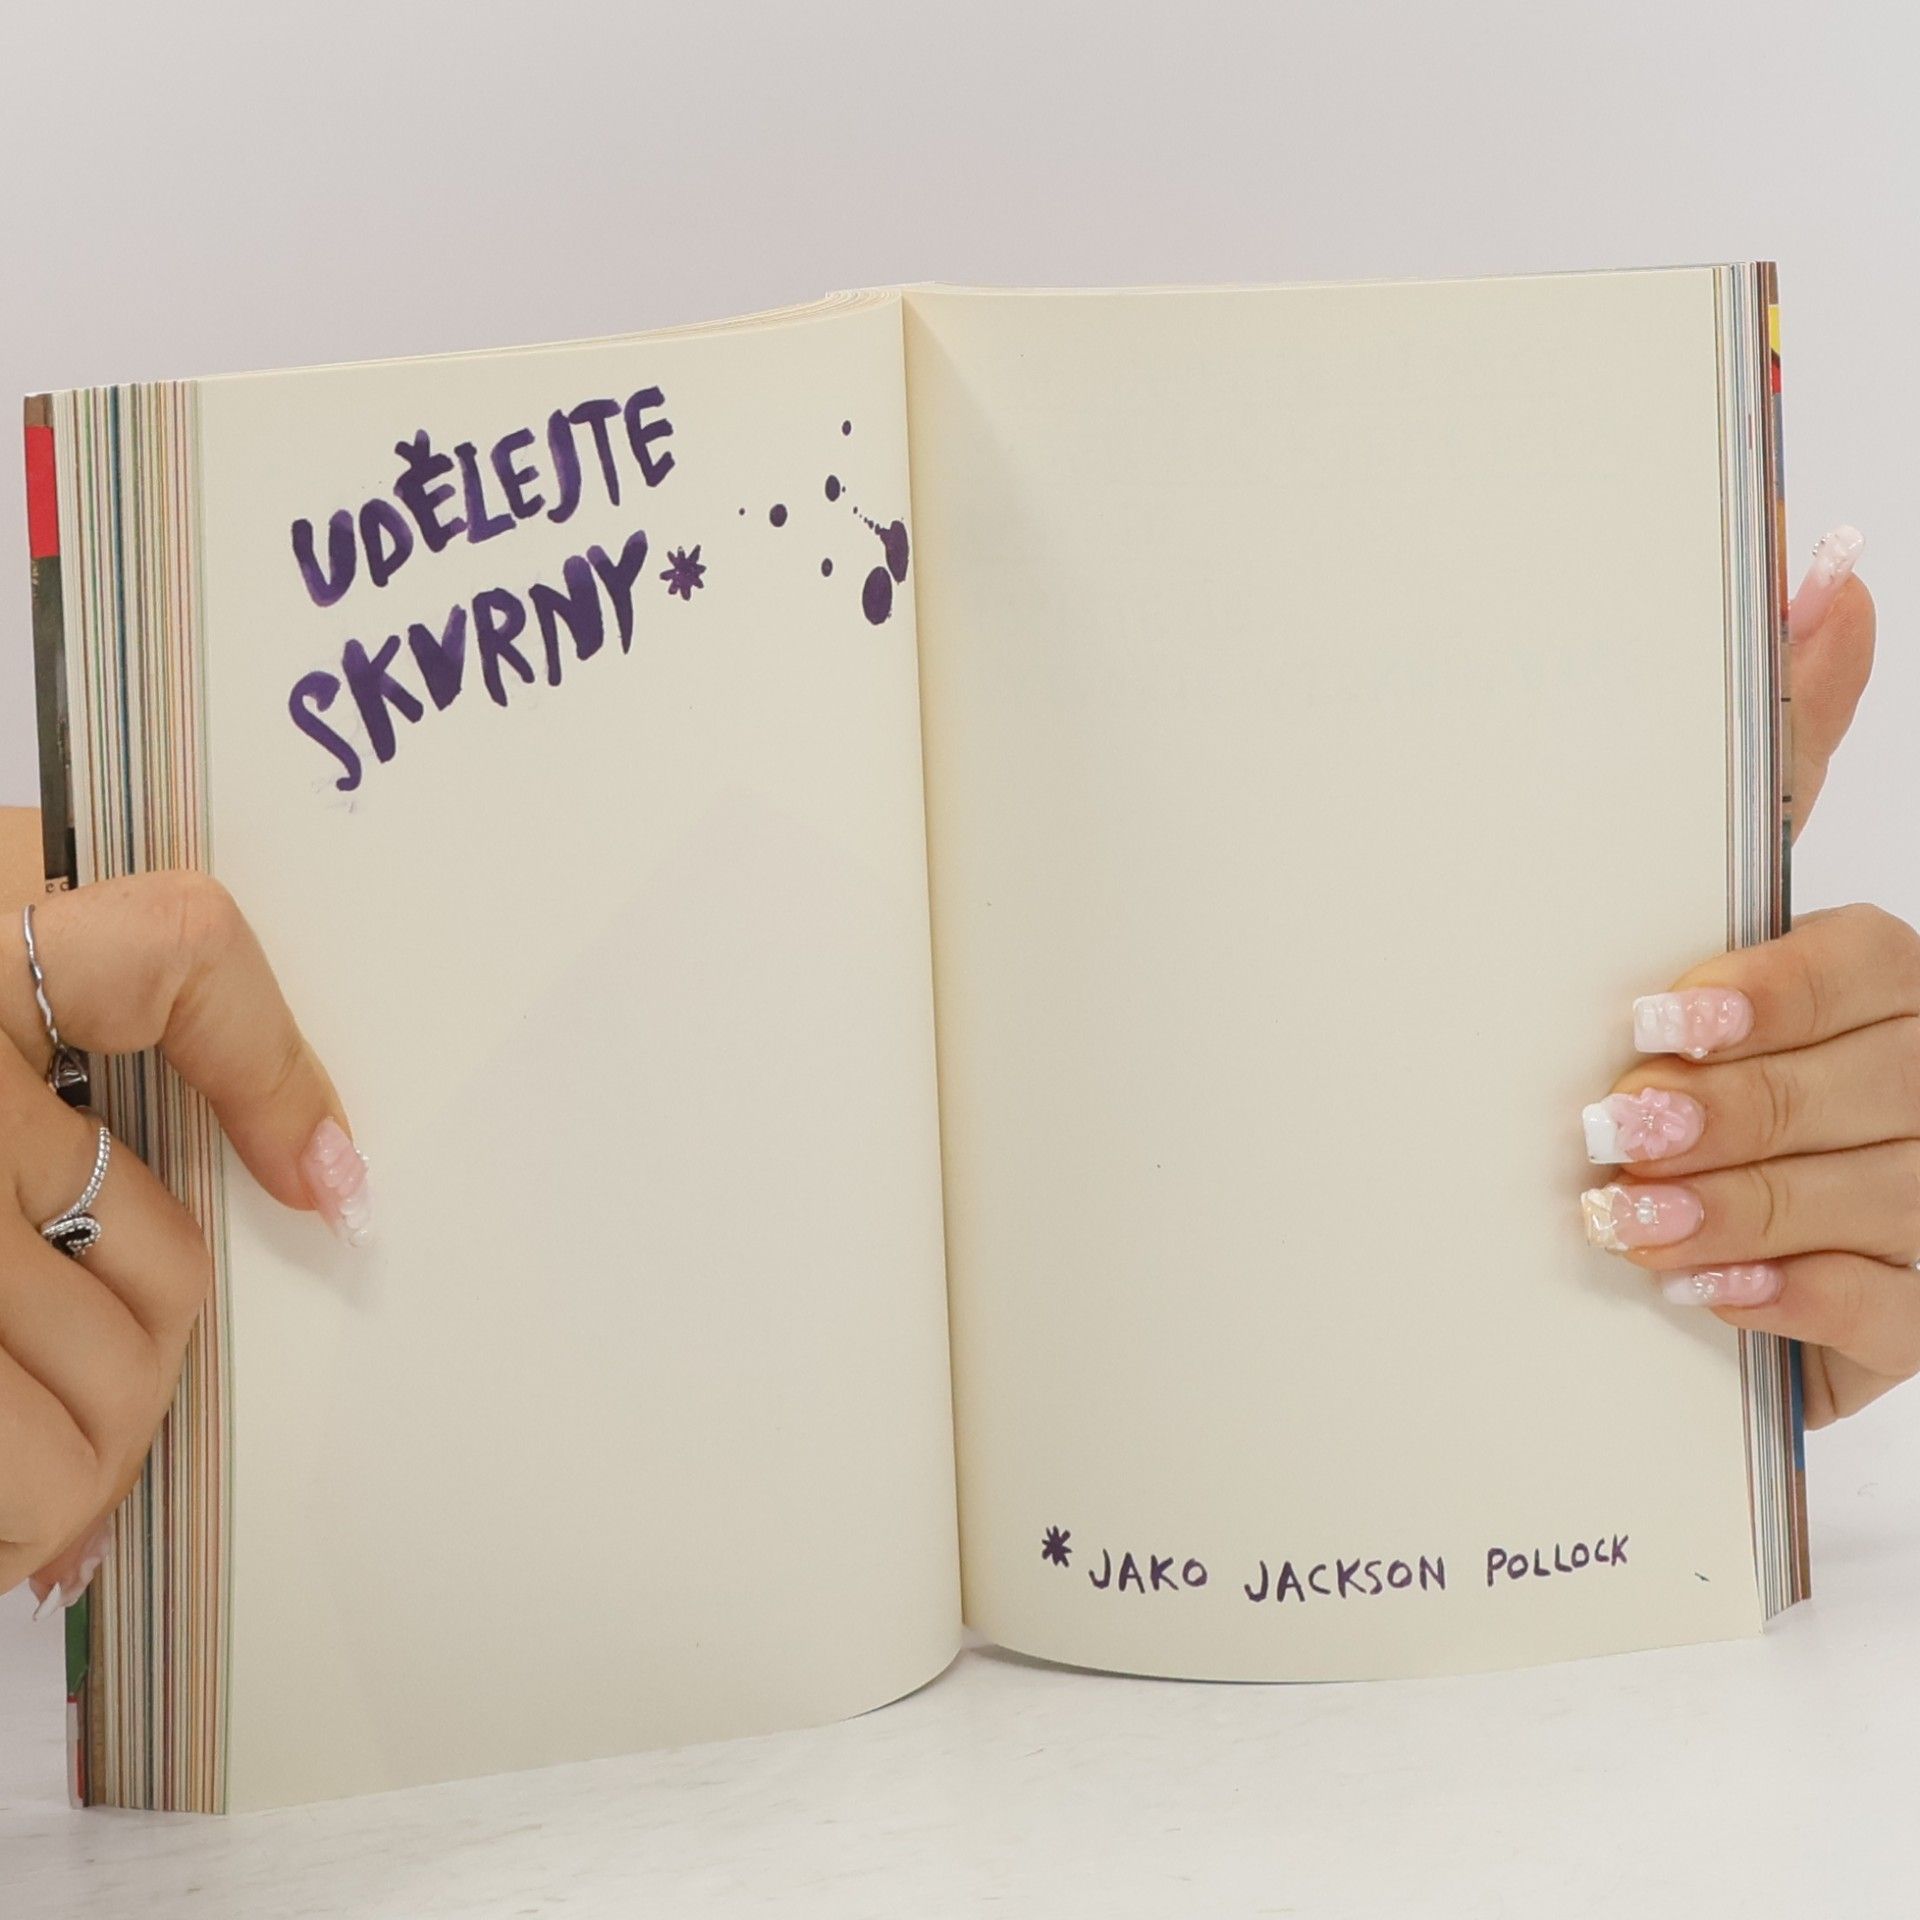 UDĚLEJTE
SKVRNY*
* JAKO JACKSON POLLOCK